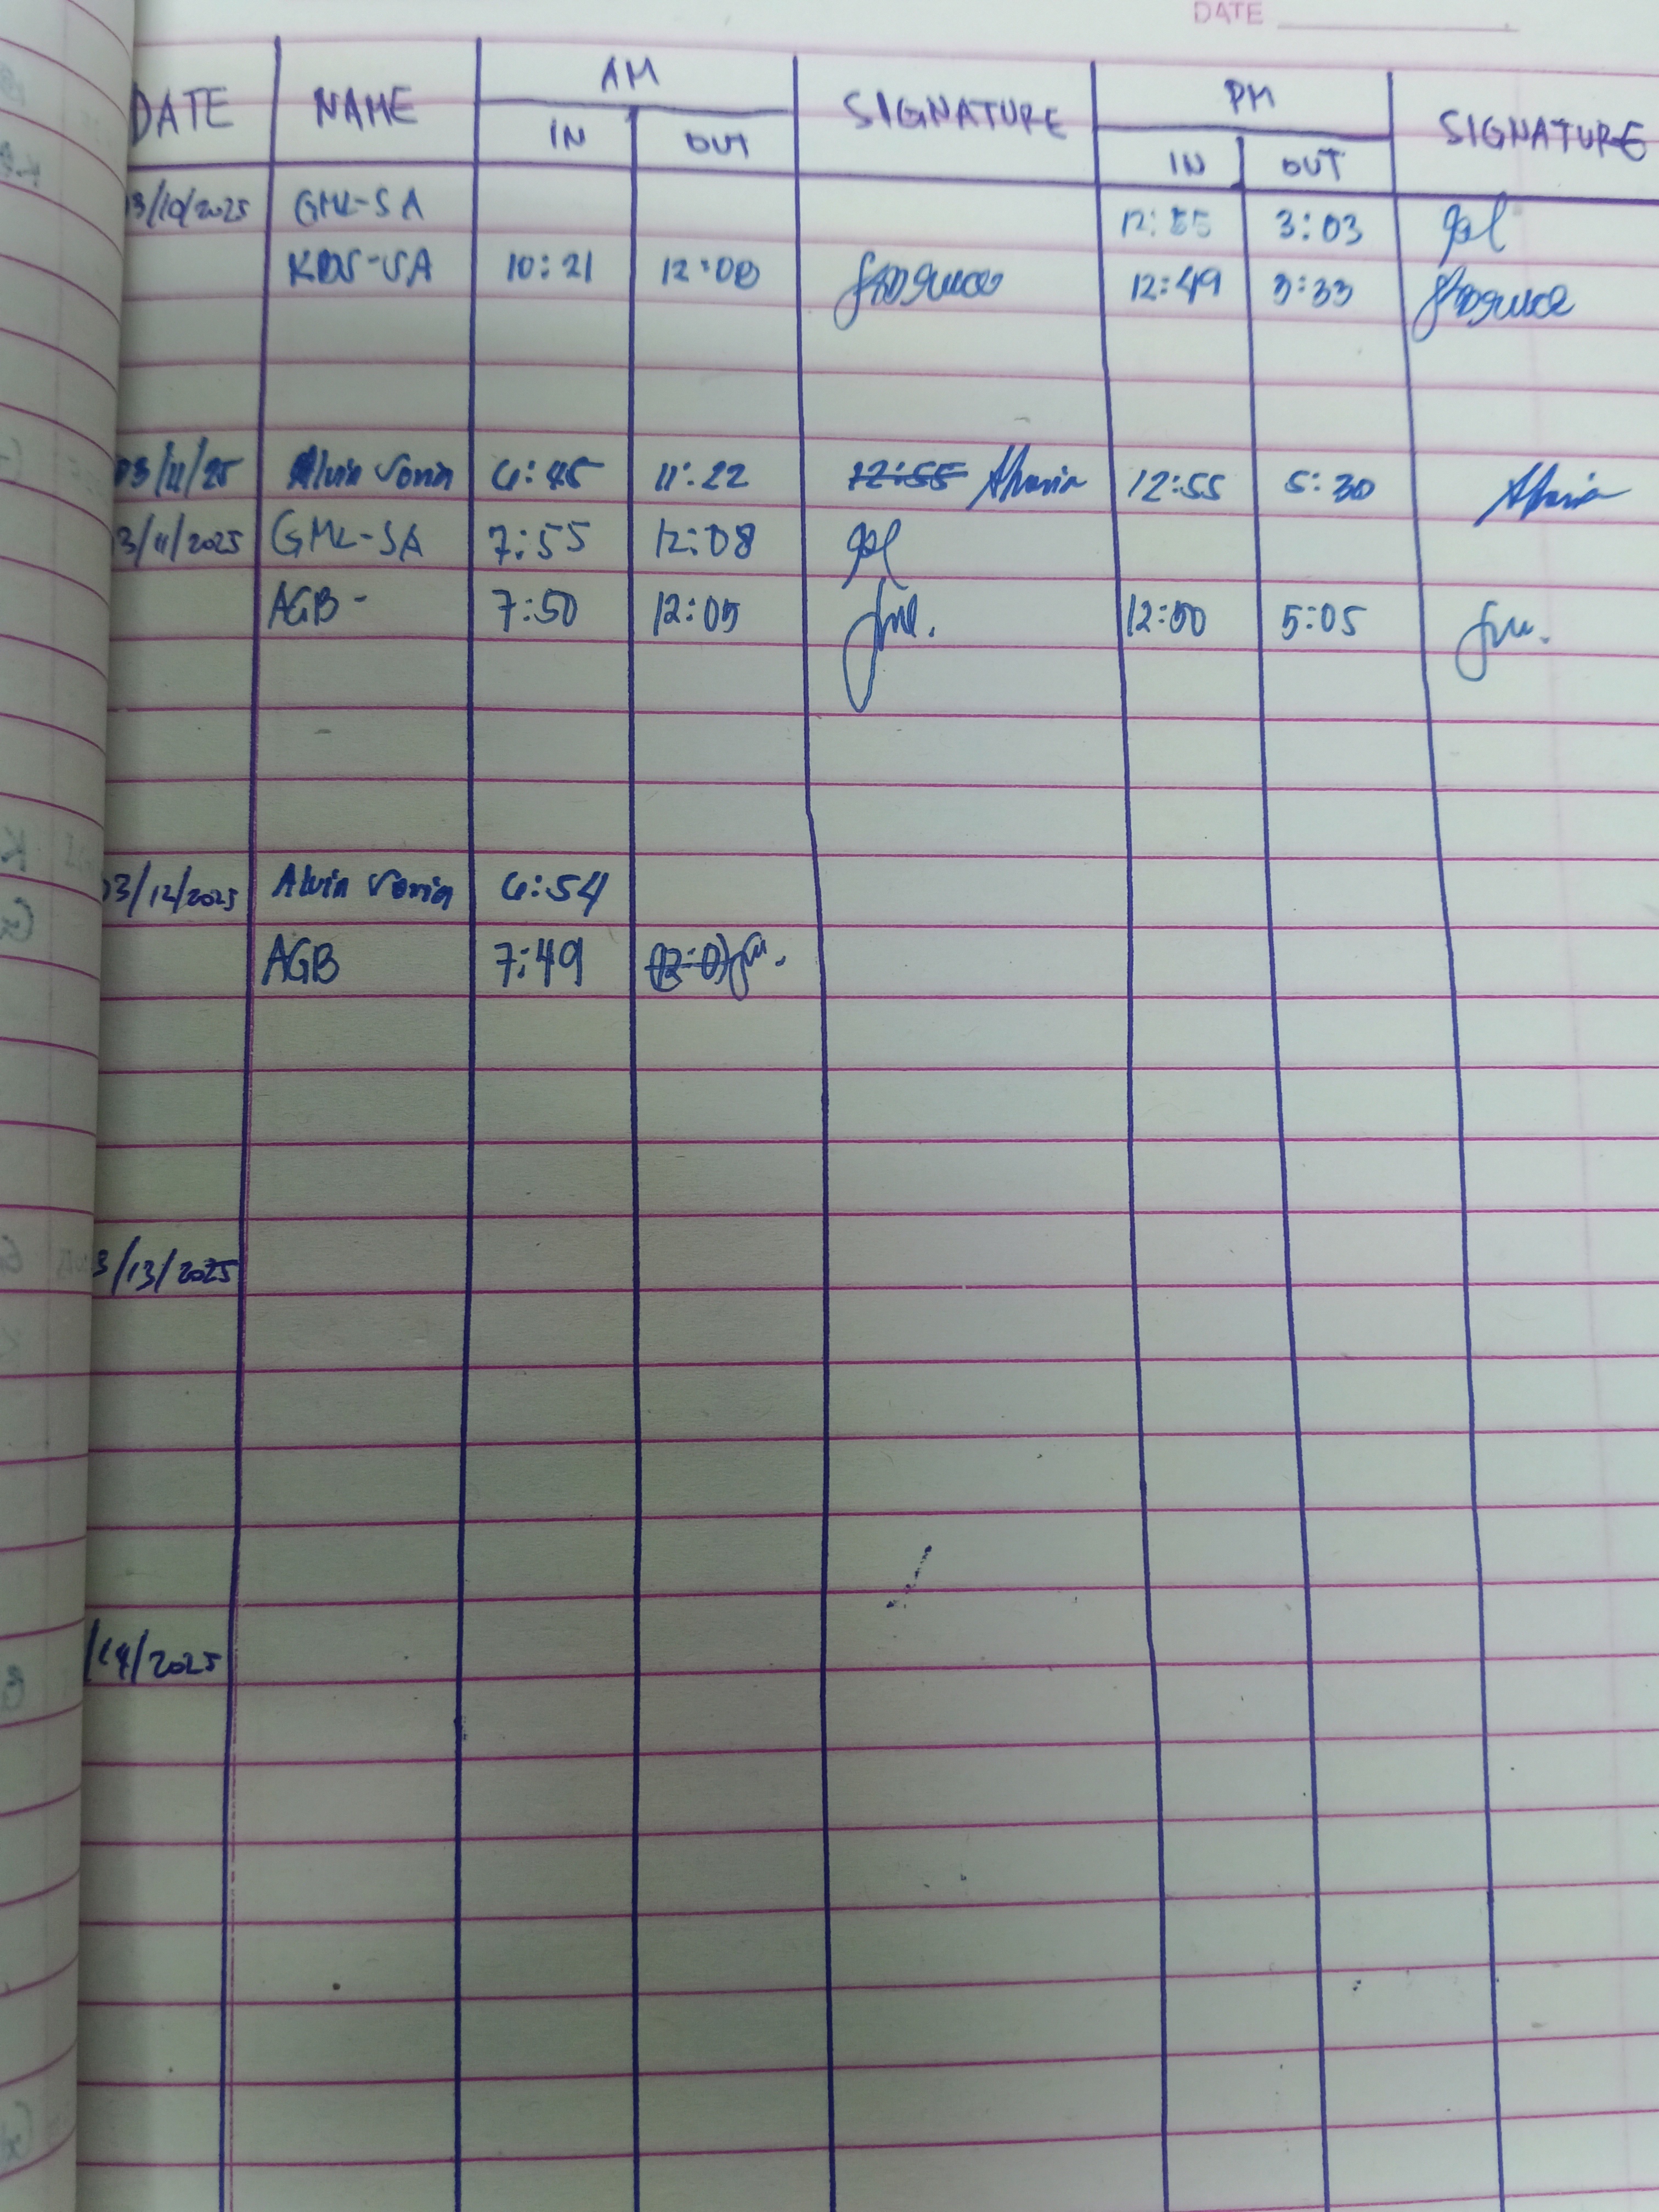 DATE
DATE NAME AM SIGNATURE PM SIGNATURE
IN OUT IN OUT
3/10/2025 GML-SA 12:55 3:03
KDS-SA 10:21 12:00 12:49 3:33
03/11/25 Alvin 6:45 11:22 12:55 12:55 5:30
3/11/2025 GML-SA 7:55 12:08
AGB - 7:50 12:05 12:50 5:05
03/12/2025 Alvin 6:54
AGB 7:49
3/13/2025
/14/2025